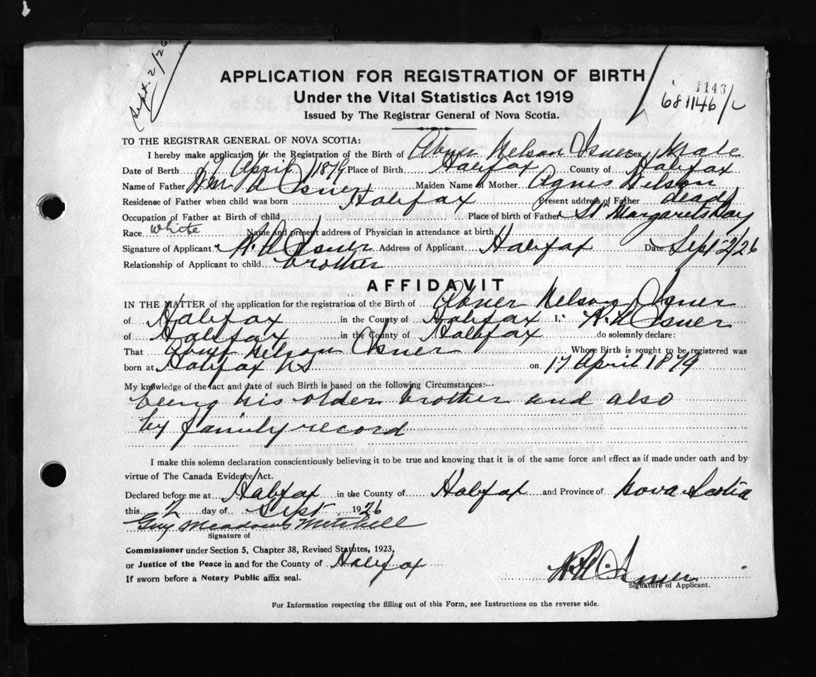 Sept. 2/26
1143
681146/2
APPLICATION FOR REGISTRATION OF BIRTH
Under the Vital Statistics Act 1919
Issued by The Registrar General of Nova Scotia.
TO THE REGISTRAR GENERAL OF NOVA SCOTIA:
I hereby make application for the Registration of the Birth of Abner Nelson Isner Sex Male
Date of Birth 17 April 1879 Place of Birth Halifax County of Halifax
Name of Father Wm. A Isner Maiden Name of Mother Agnes Nelson
Residence of Father when child was born Halifax Present address of Father dead
Occupation of Father at Birth of child Place of birth of Father St Margarets Bay
Race white Name and present address of Physician in attendance at birth
Signature of Applicant Isner Address of Applicant Halifax Date Sept 2/26
Relationship of Applicant to child brother
AFFIDAVIT
IN THE MATTER of the application for the registration of the Birth of Abner Nelson Isner
of Halifax in the County of Halifax I, Isner
of Halifax in the County of Halifax do solemnly declare:
That Abner Nelson Isner Whose Birth is sought to be registered was
born at Halifax NS on 17 April 1879
My knowledge of the fact and date of such Birth is based on the following Circumstances:—
being his older brother and also
by family record
I make this solemn declaration conscientiously believing it to be true and knowing that it is of the same force and effect as if made under oath and by
virtue of The Canada Evidence Act.
Declared before me at Halifax in the County of Halifax and Province of Nova Scotia
this 2 day of Sept 1926
Guy Meadows Mitchell
Signature of
Commissioner under Section 5, Chapter 38, Revised Statutes, 1923,
or Justice of the Peace in and for the County of Halifax
If sworn before a Notary Public affix seal.
Isner
Signature of Applicant.
For Information respecting the filling out of this Form, see Instructions on the reverse side.